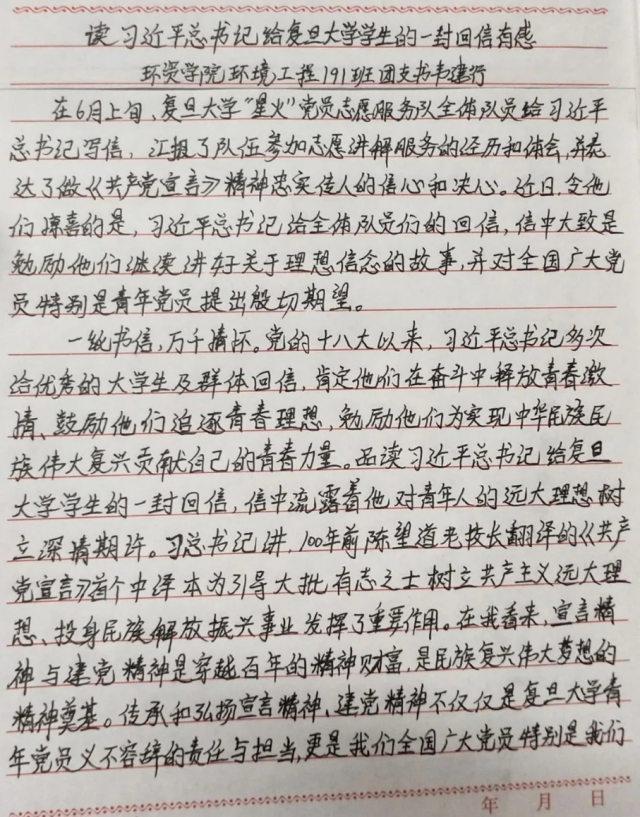 读习近平总书记给复旦大学学生的一封回信有感
环资学院环境工程191班团支书韦建行
在6月上旬、复旦大学“星火”党员志愿服务队全体队员给习近平
总书记写信,汇报了队伍参加志愿讲解服务的经历和体会,并表
达了做《共产党宣言》精神忠实传人的信心和决心。近日,令他
们惊喜的是,习近平总书记给全体队员们的回信,信中大致是
勉励他们继续讲好关于理想信念的故事,并对全国广大党
员特别是青年党员提出殷切期望。
一纸书信,万千情怀。党的十八大以来,习近平总书记多次
给优秀的大学生及群体回信,肯定他们在奋斗中释放青春激
情、鼓励他们追逐青春理想,勉励他们为实现中华民族民
族伟大复兴贡献自己的青春力量。品读习近平总书记给复旦
大学学生的一封回信,信中流露着他对青年人的远大理想树
立深情期许。习总书记讲,100年前陈望道老校长翻译的《共产
党宣言》首个中译本为引导大批有志之士树立共产主义远大理
想、投身民族解放振兴事业发挥了重要作用。在我看来,宣言精
神与建党精神是穿越百年的精神财富,是民族复兴伟大梦想的
精神奠基。传承和弘扬宣言精神、建党精神不仅仅是复旦大学青
年党员义不容辞的责任与担当,更是我们全国广大党员特别是我们
年 月 日